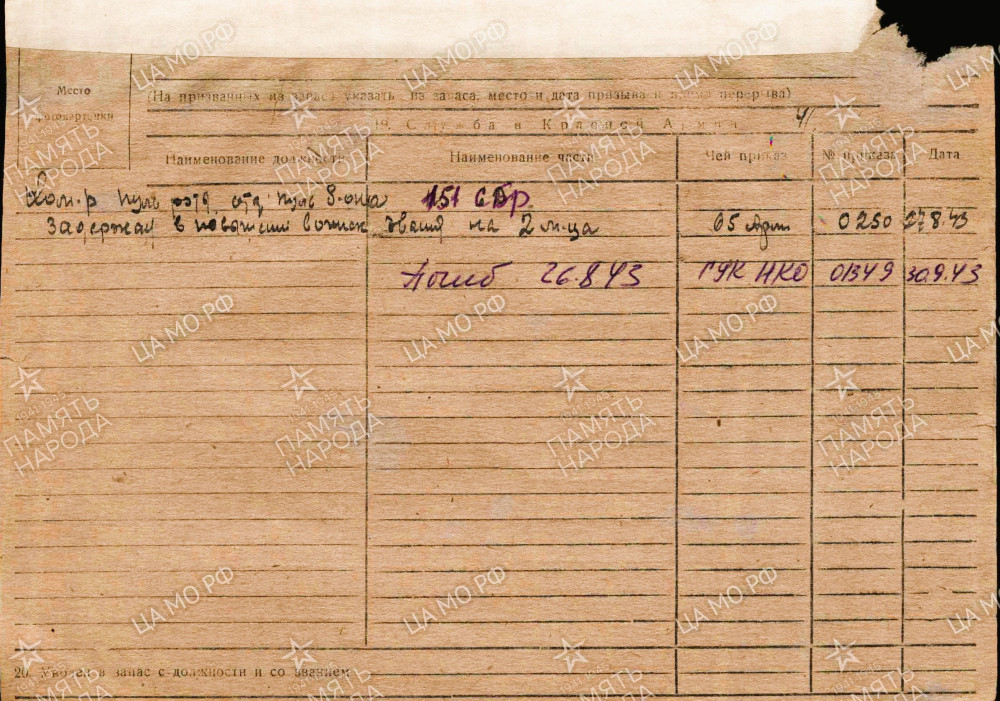 Место
фотокарточки
(На призванных из запаса указать: из запаса, место и дата призыва и время перерыва)
19. Служба в Красной Армии
Наименование должности Наименование части Чей приказ № приказа Дата
Ком-р пуль отд. пуль 151 сбр.
Задержан в повышении воинск звания на 2 м-ца 65 Арм 0250 27.8.43
Погиб 26.8.43 ГУК НКО 01349 30.9.43
20. Уволен в запас с должности и со званием
ЦА МО РФ
1941-1945
ПАМЯТЬ
НАРОДА